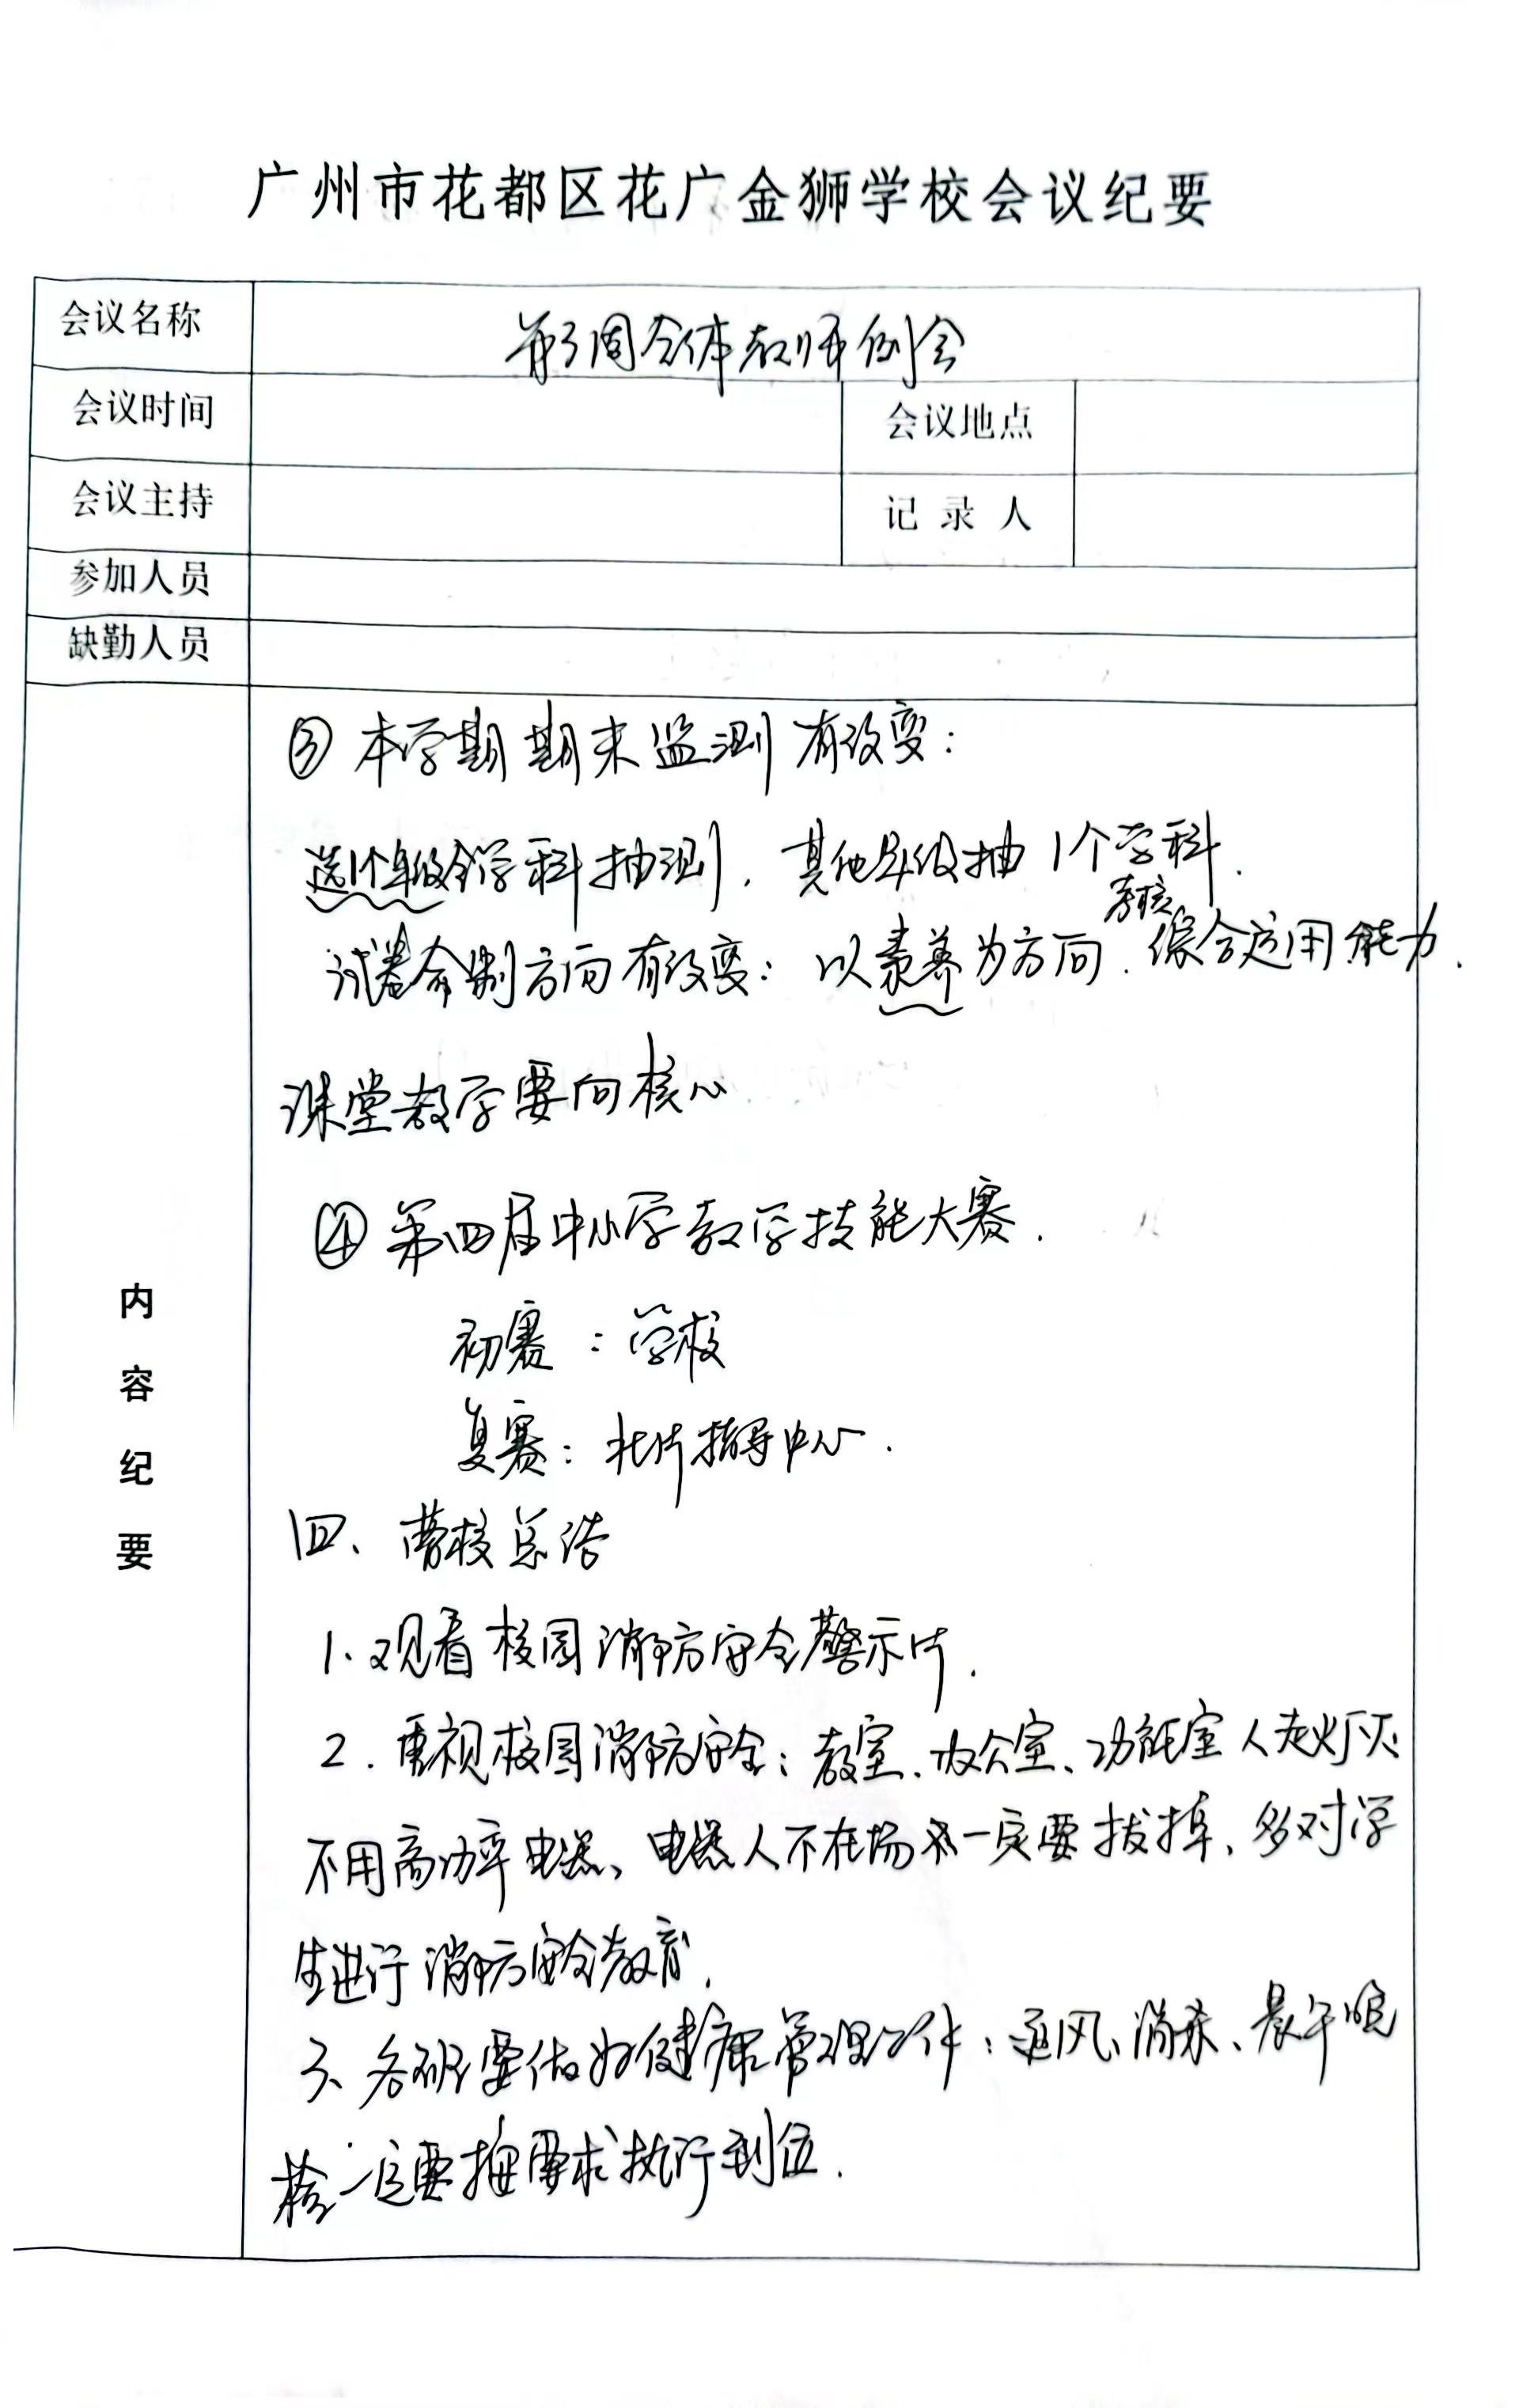 广州市花都区花广金狮学校会议纪要
会议名称 第3周全体教师例会
会议时间 会议地点
会议主持 记录人
参加人员
缺勤人员
内容纪要
③ 本学期期末监测有改变：
选1个年级全学科抽测，其他年级抽1个学科.
试卷命制方向有改变：以素养为方向.考核综合运用能力.
课堂教学要向核心
④ 第四届中小学教学技能大赛.
初赛：学校
复赛：北片指导中心.
四、曹校总结
1、观看校园消防安全警示片.
2.重视校园消防安全：教室、办公室、功能室人走灯灭
不用高功率电器、电器人不在场一定要拔掉、多对学
生进行消防安全教育.
3、各班要做好健康管理工作：通风、消杀、晨午晚
检一定要按要求执行到位.